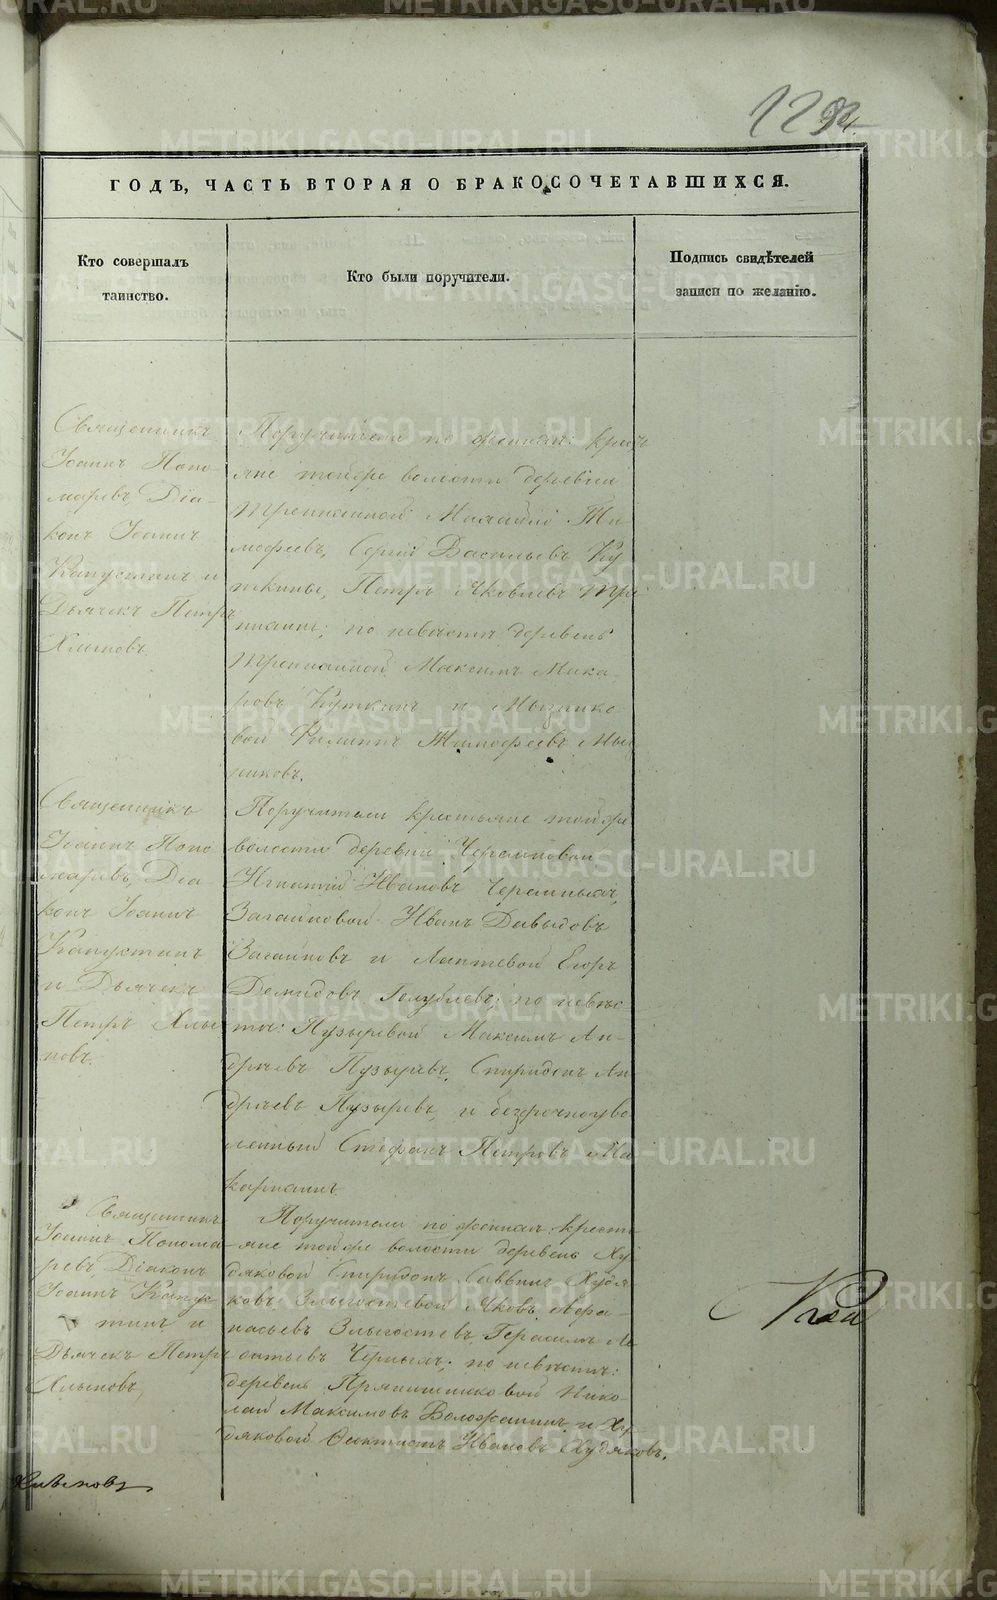 1294
ГОДЪ, ЧАСТЬ ВТОРАЯ О БРАКОСОЧЕТАВШИХСЯ.
Кто совершалъ
таинство.
Кто были поручители.
Подпись свидѣтелей
записи по желанію.
Священникъ
Іоаннъ Поно-
маревъ, Діа-
конъ Іоаннъ
Капустинъ и
Дьячекъ Петръ
Хлыновъ.
Поручители по женихѣ: кресть
яне тойже волости деревни
Тимофеевъ, Сергій Васильевъ Ку
ткины, Петръ Яковлевъ
по невѣстѣ деревень
Максимъ Мака-
ровъ Куткинъ и Мыльнико-
вой Филиппъ Тимофеевъ Мыль
никовъ.
Священникъ
Іоаннъ Поно
маревъ, Діа-
конъ Іоаннъ
Капустинъ
и Дьячекъ
Петръ Хлы-
новъ.
Поручители крестьяне тойже
волости деревни Черемновой
Игнатій Ивановъ Черемныхъ,
Загайновой Иванъ Давыдовъ
Загайновъ и Лаптевой Егоръ
Демидовъ Голубевъ; по невѣс
тѣ: Пузыревой Максимъ Ан-
дреевъ Пузыревъ, Спиридонъ Ан
дреевъ Пузыревъ, и безсрочноуво
ленный Стефанъ Петровъ Ма
каркинъ.
Священникъ
Іоаннъ Понома
ревъ, Діаконъ
Іоаннъ Капус
тинъ и
Дьячекъ Петръ
Хлыновъ,
Поручители по женихѣ кресть
яне тойже волости деревень Ху
дяковой Спиридонъ Саввинъ Худя
ковъ, Злыгостевой Яковъ Афа-
насьевъ Злыгостевъ, Герасимъ Ле
онтьевъ Черныхъ; по невѣстѣ:
деревень Прянишниковой Нико-
лай Максимовъ Воложанинъ и Ху
дяковой Феоктистъ Ивановъ Худяковъ.
METRIKI.GASO-URAL.RU